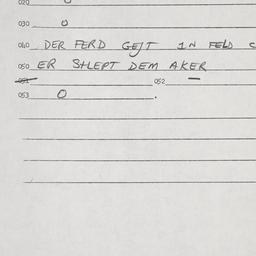 020
030 0
040 DER FERD GEJT IN FELD
050 ER SHLEPT DEM AKER
051 052 —
053 0 .